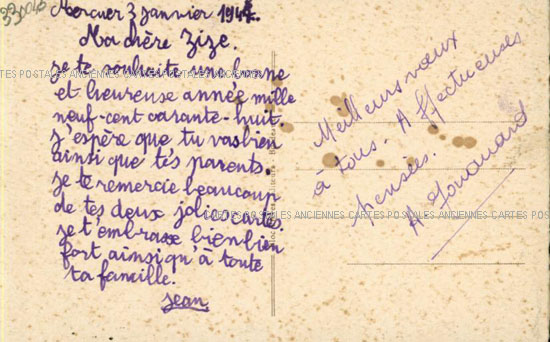 Mercuer 3 Janvier 1948.
Ma chère Zize.
je te souhaite une bonne
et heureuse année mille
neuf-cent carante-huit.
j'espère que tu vas bien
ainsi que tes parents.
je te remercie beaucoup
de tes deux jolies cartes
je t'embrasse bien bien
fort ainsi qu'à toute
ta famille.
jean
Meilleurs vœux
à tous. Affectueuses
pensées.
CARTES POSTALES ANCIENNES CARTES POSTALES ANCIENNES CARTES POSTALES ANCIENNES CARTES POSTALES
CARTES POSTALES ANCIENNES CARTES POSTALES ANCIENNES CARTES POS